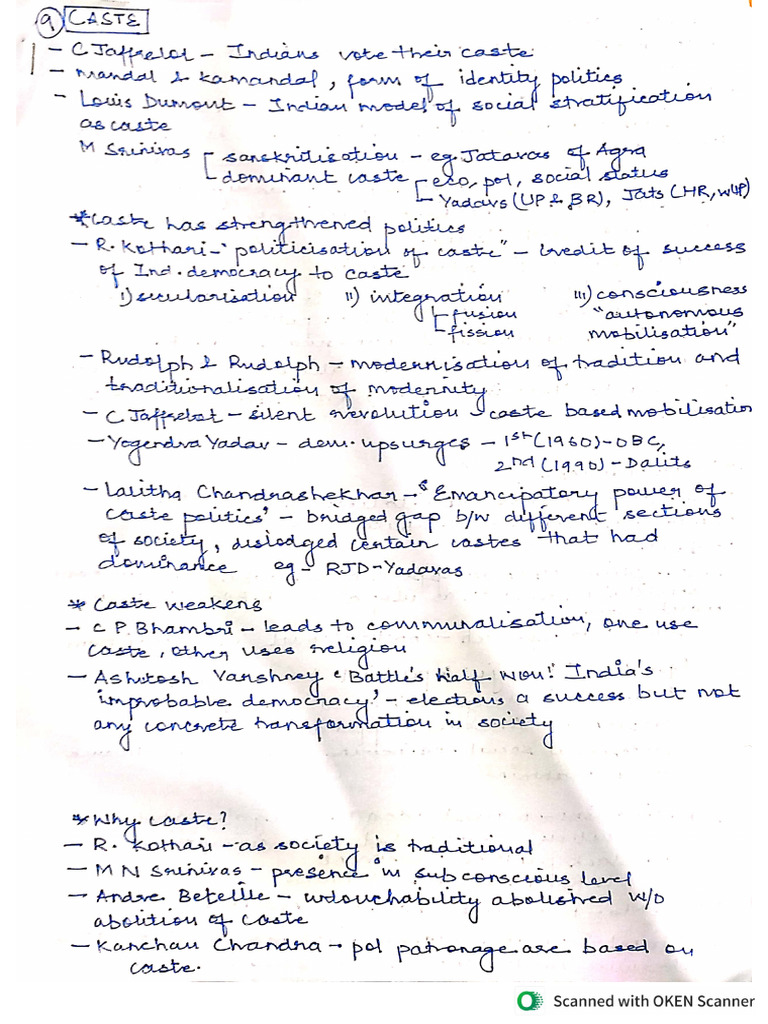 9 CASTE
- C Jaffrelot - Indians vote their caste
- Mandal & Kamandal, form of identity politics
- Louis Dumont - Indian model of social stratification
as caste
M Srinivas - sanskritisation - eg. Jatavas of Agra
- dominant caste - eco, pol, social status
- Yadavs (UP & BR), Jats (HR, WUP)
* Caste has strengthened politics
- R. Kothari - "politicisation of caste" - credit of success
of Ind. democracy to caste
i) secularisation ii) integration iii) consciousness
- fusion "autonomous
- fission mobilisation"
- Rudolph & Rudolph - modernisation of tradition and
traditionalisation of modernity
- C. Jaffrelot - silent revolution - caste based mobilisation
- Yogendra Yadav - dem. upsurges - 1st (1960) - OBC,
2nd (1990) - Dalits
- Lalitha Chandrashekhar - 'Emancipatory power of
caste politics' - bridged gap b/w different sections
of society, dislodged certain castes that had
dominance eg - RJD - Yadavas
* Caste weakens
- C P. Bhambri - leads to communalisation, one use
caste, other uses religion
- Ashutosh Varshney 'Battle's half won: India's
improbable democracy' - elections a success but not
any concrete transformation in society
* Why caste?
- R. Kothari - as society is traditional
- M N Srinivas - presence in subconscious level
- Andre Beteille - untouchability abolished w/o
abolition of caste
- Kanchan Chandra - pol patronage are based on
caste.
Scanned with OKEN Scanner